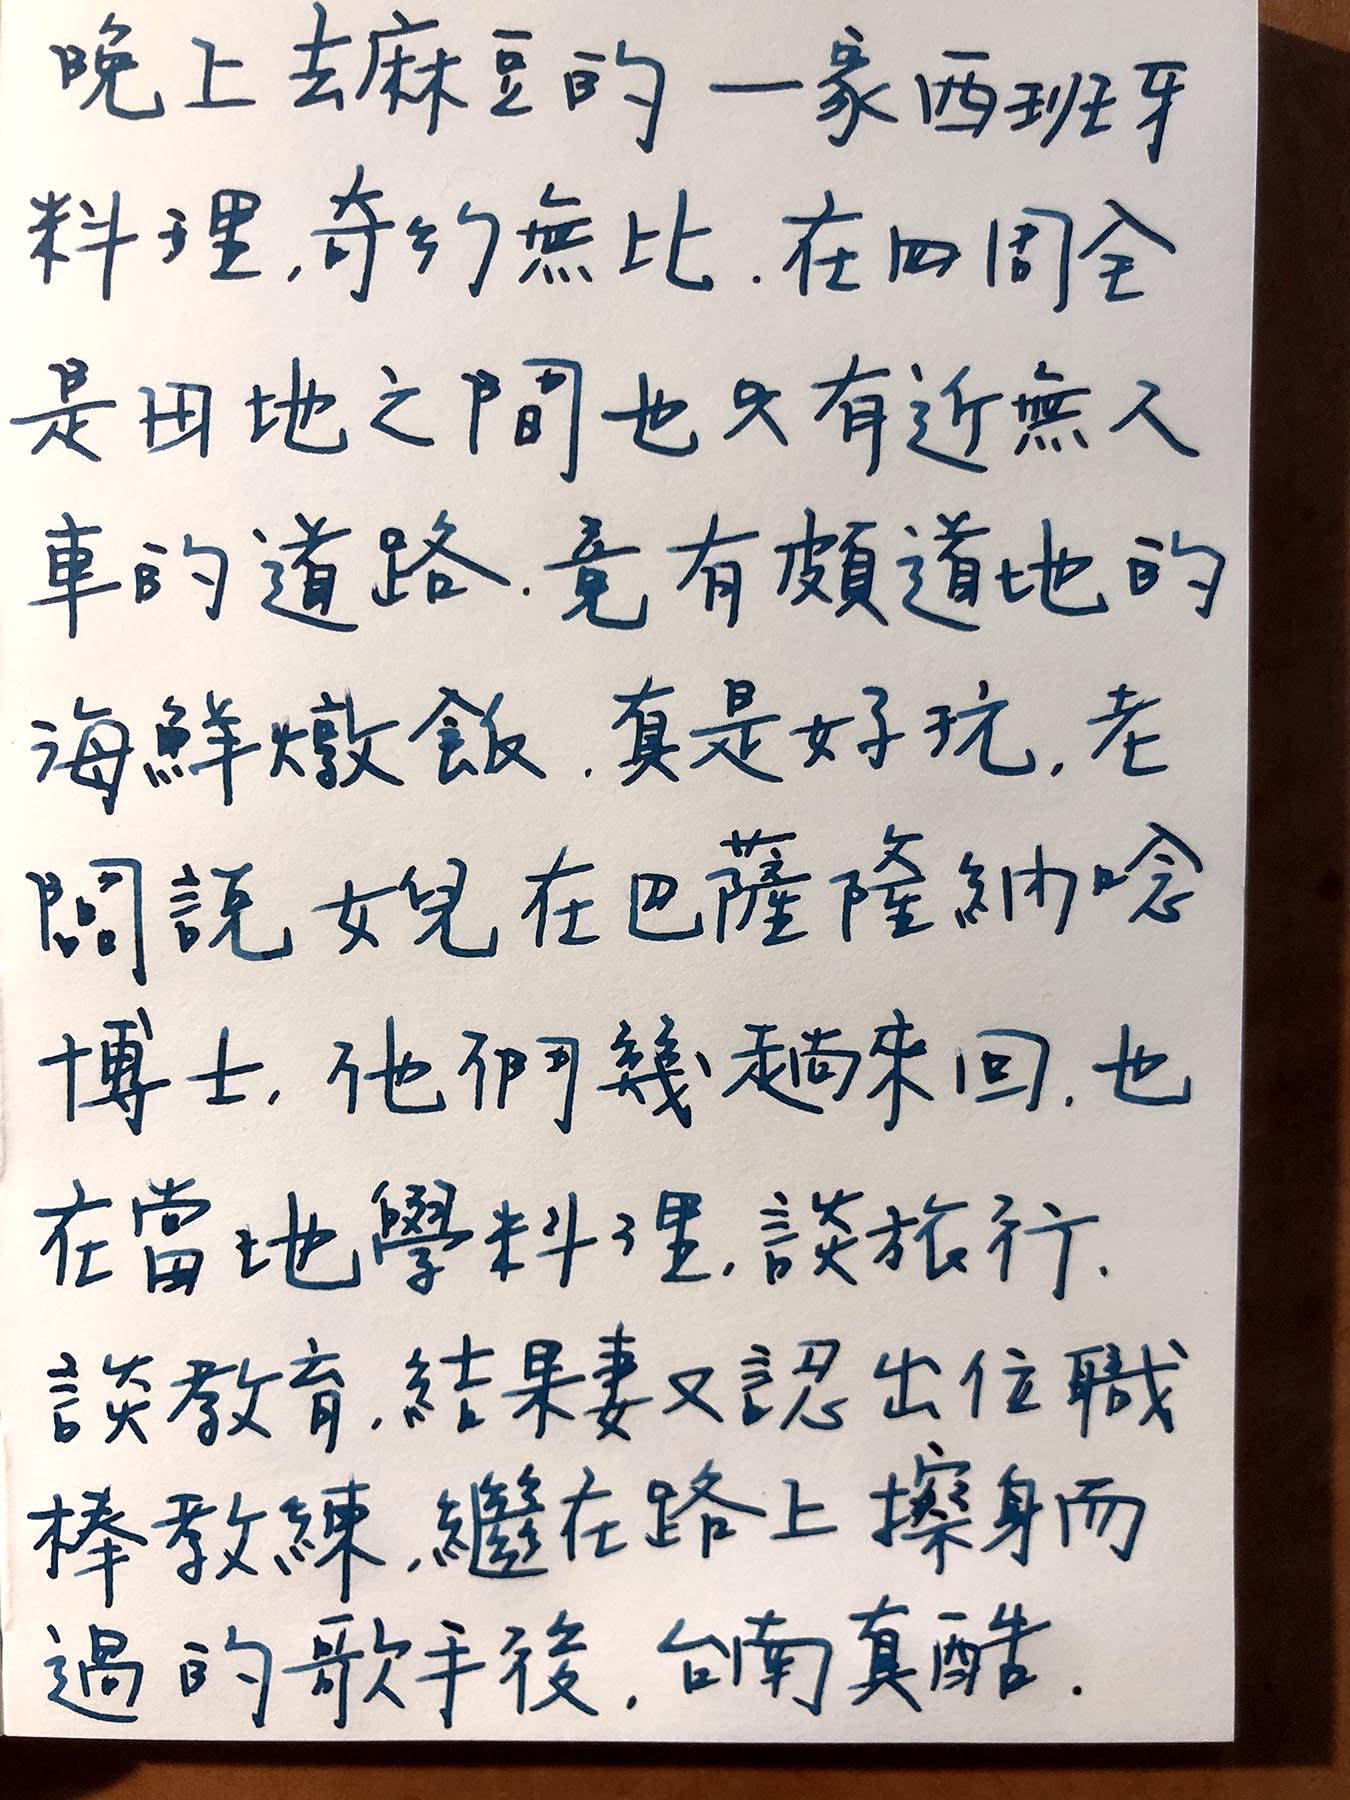 晚上去麻豆的一家西班牙
料理,奇幻無比.在四周全
是田地之間也只有近無人
車的道路.竟有頗道地的
海鮮燉飯.真是好玩,老
闆說女兒在巴薩隆納唸
博士,他們幾趟來回,也
在當地學料理,談旅行.
談教育,結果妻又認出位職
棒教練,繼在路上擦身而
過的歌手後,台南真酷.